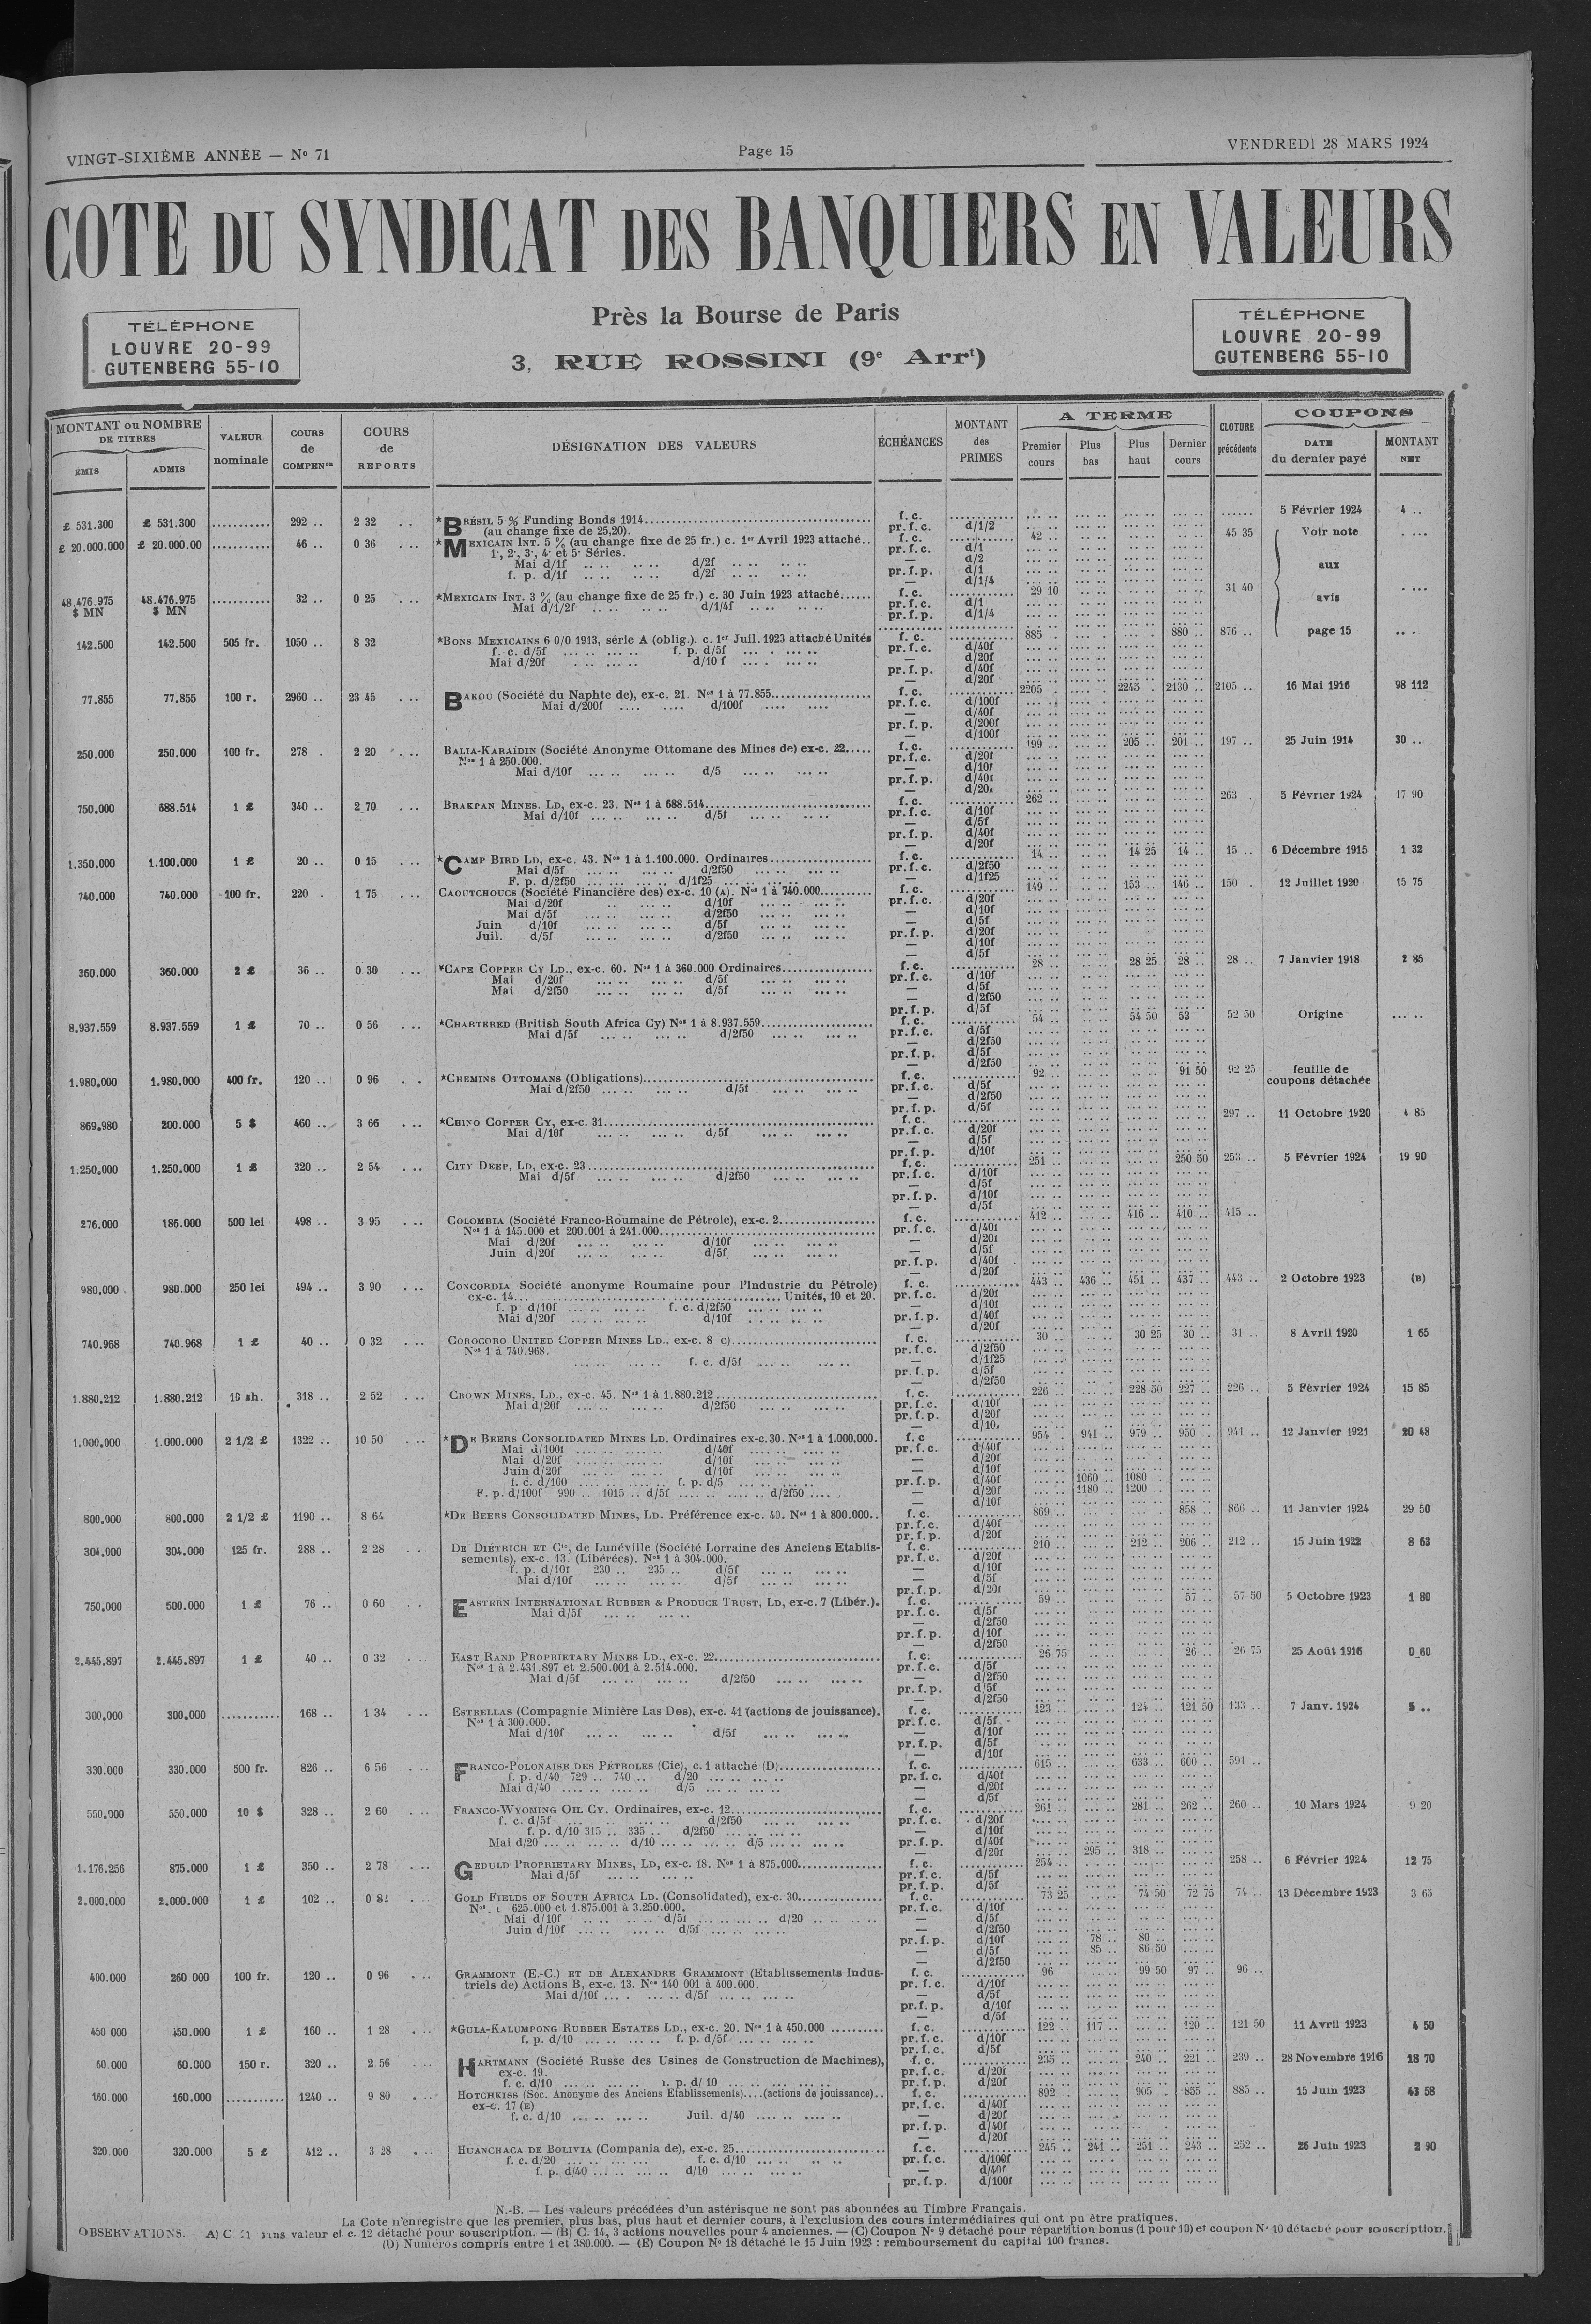 VINGT-SIXIÈME ANNÉE — No 71
Page 15
VENDREDI 28 MARS 1924
COTE DU SYNDICAT DES BANQUIERS EN VALEURS
Près la Bourse de Paris
3, RUE ROSSINI (9e Arrt)
TÉLÉPHONE
LOUVRE 20-99
GUTENBERG 55-10
TÉLÉPHONE
LOUVRE 20-99
GUTENBERG 55-10
MONTANT ou NOMBRE DE TITRES
ÉMIS
ADMIS
VALEUR nominale
COURS de COMPENon
COURS de REPORTS
DÉSIGNATION DES VALEURS
ÉCHÉANCES
MONTANT des PRIMES
A TERME
Premier cours
Plus bas
Plus haut
Dernier cours
CLOTURE précédente
COUPONS
DATE du dernier payé
MONTANT NET
£ 531.300 £ 531.300 292 .. 2 32 *BRÉSIL 5 % Funding Bonds 1914 f. c. 5 Février 1924 4 ..
(au change fixe de 25,20). pr. f. c. d/1/2
£ 20.000.000 £ 20.000.00 46 .. 0 36 *MEXICAIN INT. 5 % (au change fixe de 25 fr.) c. 1er Avril 1923 attaché.. f. c. 42 .. 45 35 Voir note
1e, 2e, 3e, 4e et 5e Séries. pr. f. c. d/1
Mai d/1f d/2f — d/2
f. p. d/1f d/2f pr. f. p. d/1 aux
— d/1/4
48.476.975 $ MN 48.476.975 $ MN 32 .. 0 25 *MEXICAIN INT. 3 % (au change fixe de 25 fr.) c. 30 Juin 1923 attaché f. c. 29 10 31 40 avis
Mai d/1/2f d/1/4f pr. f. c. d/1
pr. f. p. d/1/4
142.500 142.500 505 fr. 1050 .. 8 32 *BONS MEXICAINS 6 0/0 1913, série A (oblig.). c. 1er Juil. 1923 attaché Unités f. c. 885 .. 880 .. 876 .. page 15
f. c. d/5f f. p. d/5f pr. f. c. d/40f
Mai d/20f d/10 f — d/20f
pr. f. p. d/40f
— d/20f
77.855 77.855 100 r. 2960 .. 23 45 BAKOU (Société du Naphte de), ex-c. 21. Nos 1 à 77.855 f. c. 2205 .. 2245 . 2130 .. 2105 .. 16 Mai 1916 98 112
Mai d/200f d/100f pr. f. c. d/100f
— d/40f
pr. f. p. d/200f
— d/100f
250.000 250.000 100 fr. 278 . 2 20 BALIA-KARAÏDIN (Société Anonyme Ottomane des Mines de) ex-c. 22 f. c. 199 .. 205 .. 201 .. 197 .. 25 Juin 1914 30 ..
Nos 1 à 250.000. pr. f. c. d/20f
Mai d/10f d/5 — d/10f
pr. f. p. d/40f
— d/20f
750,000 688.514 1 £ 340 .. 2 70 BRAKPAN MINES. LD, ex-c. 23. Nos 1 à 688.514 f. c. 262 .. 263 . 5 Février 1924 17 90
Mai d/10f d/5f pr. f. c. d/10f
— d/5f
pr. f. p. d/40f
— d/20f
1.350,000 1.100.000 1 £ 20 .. 0 15 *CAMP BIRD LD, ex-c. 43. Nos 1 à 1.100.000. Ordinaires f. c. 14 .. 14 25 14 .. 15 .. 6 Décembre 1915 1 32
Mai d/5f d/2f50 pr. f. c. d/2f50
F. p. d/2f50 d/1f25 — d/1f25
740.000 740.000 100 fr. 220 . 1 75 CAOUTCHOUCS (Société Financière des) ex-c. 10 (A). Nos 1 à 740.000 f. c. 149 .. 153 .. 146 .. 150 . 12 Juillet 1920 15 75
Mai d/20f d/10f pr. f. c. d/20f
Mai d/5f d/2f50 — d/10f
Juin d/10f d/5f — d/5f
Juil. d/5f d/2f50 pr. f. p. d/20f
— d/10f
— d/5f
360.000 360.000 2 £ 36 .. 0 30 *CAPE COPPER CY LD., ex-c. 60. Nos 1 à 360.000 Ordinaires f. c. 28 .. 28 25 28 .. 28 .. 7 Janvier 1918 2 85
Mai d/20f d/5f pr. f. c. d/10f
Mai d/2f50 d/5f — d/5f
— d/2f50
pr. f. p. d/5f
8,937.559 8.937.559 1 £ 70 .. 0 56 *CHARTERED (British South Africa Cy) Nos 1 à 8.937.559 f. c. 54 .. 54 50 53 52 50 Origine
Mai d/5f d/2f50 pr. f. c. d/5f
— d/2f50
pr. f. p. d/5f
— d/2f50
1.980,000 1.980.000 400 fr. 120 .. 0 96 *CHEMINS OTTOMANS (Obligations) f. c. 92 .. 91 50 92 25 feuille de coupons détachée
Mai d/2f50 d/5f pr. f. c. d/5f
— d/2f50
pr. f. p. d/5f
869,980 200.000 5 $ 460 .. 3 66 *CHINO COPPER CY, ex-c. 31 f. c. 297 .. 11 Octobre 1920 4 85
Mai d/10f d/5f pr. f. c. d/20f
— d/5f
pr. f. p. d/10f
1.250,000 1.250,000 1 £ 320 .. 2 54 CITY DEEP, LD, ex-c. 23 f. c. 251 .. 250 50 253 .. 5 Février 1924 19 90
Mai d/5f d/2f50 pr. f. c. d/10f
— d/5f
pr. f. p. d/10f
— d/5f
276.000 186.000 500 lei 498 .. 3 95 COLOMBIA (Société Franco-Roumaine de Pétrole), ex-c. 2 f. c. 412 .. 416 .. 410 .. 415 ..
Nos 1 à 145.000 et 200.001 à 241.000 pr. f. c. d/40f
Mai d/20f d/10f — d/20f
Juin d/20f d/5f — d/5f
pr. f. p. d/40f
— d/20f
980,000 980.000 250 lei 494 .. 3 90 CONCORDIA Société anonyme Roumaine pour l'Industrie du Pétrole) f. c. 443 .. 436 .. 451 .. 437 .. 443 .. 2 Octobre 1923 (B)
ex-c. 14 Unités, 10 et 20. pr. f. c. d/20f
f. p. d/10f f. c. d/2f50 — d/10f
Mai d/20f d/10f pr. f. p. d/40f
— d/20f
740.968 740.968 1 £ 40 .. 0 32 COROCORO UNITED COPPER MINES LD., ex-c. 8 c) f. c. 30 .. 30 25 30 .. 31 .. 8 Avril 1920 1 65
Nos 1 à 740.968. pr. f. c. d/2f50
f. c. d/5f — d/1f25
pr. f. p. d/5f
— d/2f50
1.880,212 1.880.212 10 sh. 318 .. 2 52 CROWN MINES, LD., ex-c. 45. Nos 1 à 1.880.212 f. c. 226 .. 228 50 227 .. 226 .. 5 Février 1924 15 85
Mai d/20f d/2f50 pr. f. c. d/10f
pr. f. p. d/20f
— d/10
1.000,000 1.000.000 2 1/2 £ 1322 .. 10 50 *DE BEERS CONSOLIDATED MINES LD. Ordinaires ex-c. 30. Nos 1 à 1.000.000. f. c 954 .. 941 .. 979 .. 950 .. 941 .. 12 Janvier 1921 20 48
Mai d/100f d/40f pr. f. c. d/40f
Mai d/20f d/10f — d/20f
Juin d/20f d/10f — d/10f
f. c. d/100 f. p. d/5 pr. f. p. d/40f 1060 .. 1080 .
F. p. d/100f 990 .. 1015 .. d/5f d/2f50 — d/20f 1180 .. 1200 ..
— d/10f
800,000 800.000 2 1/2 £ 1190 .. 8 64 *DE BEERS CONSOLIDATED MINES, LD. Préférence ex-c. 40. Nos 1 à 800.000.. f. c. 869 .. 858 .. 866 .. 11 Janvier 1924 29 50
pr. f. c. d/40f
pr. f. p. d/20f
304.000 304.000 125 fr. 288 .. 2 28 DE DIÉTRICH ET Cie, de Lunéville (Société Lorraine des Anciens Etablis- f. c. 210 .. 212 .. 206 .. 212 .. 15 Juin 1922 8 63
sements), ex-c. 13. (Libérées). Nos 1 à 304.000. pr. f. c. d/20f
f. p. d/10f 230 .. 235 .. d/5f — d/10f
Mai d/10f d/5f — d/5f
pr. f. p. d/20f
750,000 500.000 1 £ 76 .. 0 60 EASTERN INTERNATIONAL RUBBER & PRODUCE TRUST, LD, ex-c. 7 (Libér.). f. c. 59 .. 57 .. 57 50 5 Octobre 1923 1 80
Mai d/5f pr. f. c. d/5f
— d/2f50
pr. f. p. d/10f
— d/2f50
2.445.897 2.445.897 1 £ 40 .. 0 32 EAST RAND PROPRIETARY MINES LD., ex-c. 22 f. c. 26 75 26 .. 26 75 25 Août 1916 0 60
Nos 1 à 2.431.897 et 2.500.001 à 2.514.000. pr. f. c. d/5f
Mai d/5f d/2f50 — d/2f50
pr. f. p. d/5f
— d/2f50
300,000 300,000 168 .. 1 34 ESTRELLAS (Compagnie Minière Las Dos), ex-c. 41 (actions de jouissance). f. c. 123 .. 124 .. 121 50 133 .. 7 Janv. 1924 5 ..
Nos 1 à 300.000. pr. f. c. d/5f
Mai d/10f d/5f — d/10f
pr. f. p. d/5f
— d/10f
330.000 330.000 500 fr. 826 .. 6 56 FRANCO-POLONAISE DES PÉTROLES (Cie), c. 1 attaché (D) f. c. 615 .. 633 .. 600 .. 591 ..
f. p. d/40 729 .. 740 .. d/20 pr. f. c. d/40f
Mai d/40 d/5 — d/20f
— d/5f
550,000 550.000 10 $ 328 .. 2 60 FRANCO-WYOMING OIL CY. Ordinaires, ex-c. 12 f. c. 261 .. 281 .. 262 .. 260 .. 10 Mars 1924 9 20
f. c. d/5f d/2f50 pr. f. c. d/20f
f. p. d/10 315 .. 335 .. d/2f50 — d/10f
Mai d/20 d/10 d/5 pr. f. p. d/40f
— d/20f 295 .. 318 ..
1.176.256 875.000 1 £ 350 .. 2 78 GEDULD PROPRIETARY MINES, LD, ex-c. 18. Nos 1 à 875.000 f. c. 254 .. 258 .. 6 Février 1924 12 75
Mai d/5f pr. f. c. d/5f
pr. f. p. d/5f
2.000,000 2.000.000 1 £ 102 .. GOLD FIELDS OF SOUTH AFRICA LD. (Consolidated), ex-c. 30 f. c. 73 25 74 50 72 75 74 .. 13 Décembre 1923 3 65
625.000 et 1.875.001 à 3.250.000. pr. f. c. d/10f
Mai d/10f d/5f d/20 — d/5f
Juin d/10f d/5f — d/2f50
pr. f. p. d/10f 78 .. 80 ..
— d/5f 85 .. 86 50
— d/2f50
400.000 260 000 100 fr. 120 .. 0 96 GRAMMONT (E.-C.) ET DE ALEXANDRE GRAMMONT (Etablissements Indus- f. c. 96 99 50 97 .. 96 ..
triels de) Actions B, ex-c. 13. Nos 140 001 à 400.000. pr. f. c. d/10f
Mai d/10f d/5f — d/5f
pr. f. p. d/10f
— d/5f
450 000 450.000 1 £ 160 .. 1 28 *GULA-KALUMPONG RUBBER ESTATES LD., ex-c. 20. Nos 1 à 450.000 f. c. 122 .. 117 .. 120 .. 121 50 11 Avril 1923 4 50
f. p. d/10 f. p. d/5f pr. f. c. d/10f
pr. f. c. d/5f
60.000 60.000 150 r. 320 .. 2 56 HARTMANN (Société Russe des Usines de Construction de Machines), f. c. 235 .. 240 .. 221 .. 239 .. 28 Novembre 1916 18 70
ex-c. 19. pr. f. c. d/20f
f. c. d/10 p. d/ 10 pr. f. p. d/20f
160.000 160.000 1240 .. 9 80 HOTCHKISS (Soc. Anonyme des Anciens Etablissements)....(actions de jouissance).. f. c. 892 .. 905 .. 855 .. 885 .. 15 Juin 1923 43 58
ex-c. 17 (E) pr. f. c. d/40f
f. c. d/10 Juil. d/40 — d/20f
pr. f. p. d/40f
— d/20f
320.000 320.000 5 £ 412 .. 3 28 HUANCHACA DE BOLIVIA (Compania de), ex-c. 25 f. c. 245 .. 241 .. 251 .. 243 .. 252 .. 26 Juin 1923 2 90
f. c. d/20 f. c. d/10 pr. f. c. d/100f
f. p. d/40 d/10 — d/40f
pr. f. p. d/100f
N.-B. — Les valeurs précédées d'un astérisque ne sont pas abonnées au Timbre Français.
La Cote n'enregistre que les premier, plus bas, plus haut et dernier cours, à l'exclusion des cours intermédiaires qui ont pu être pratiqués.
OBSERVATIONS. A) C. 11 sans valeur et c. 12 détaché pour souscription. — (B) C. 14, 3 actions nouvelles pour 4 anciennes. — (C) Coupon No 9 détaché pour répartition bonus (1 pour 10) et coupon No 10 détaché pour souscription.
(D) Numéros compris entre 1 et 380.000. — (E) Coupon No 18 détaché le 15 Juin 1923 : remboursement du capital 100 francs.